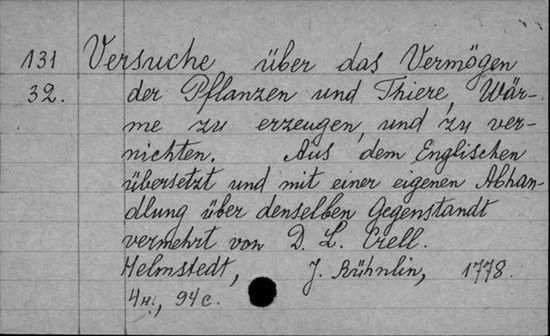 131 Versuche über das Vermögen
32. der Pflanzen und Thiere, Wär-
me zu erzeugen, und zu ver-
nichten. Aus dem Englischen
übersetzt und mit einer eigenen Abhan-
dlung über denselben Gegenstandt
vermehrt von D. L. Crell.
Helmstedt, J. Kühnlin, 1778.
4н., 94 с.